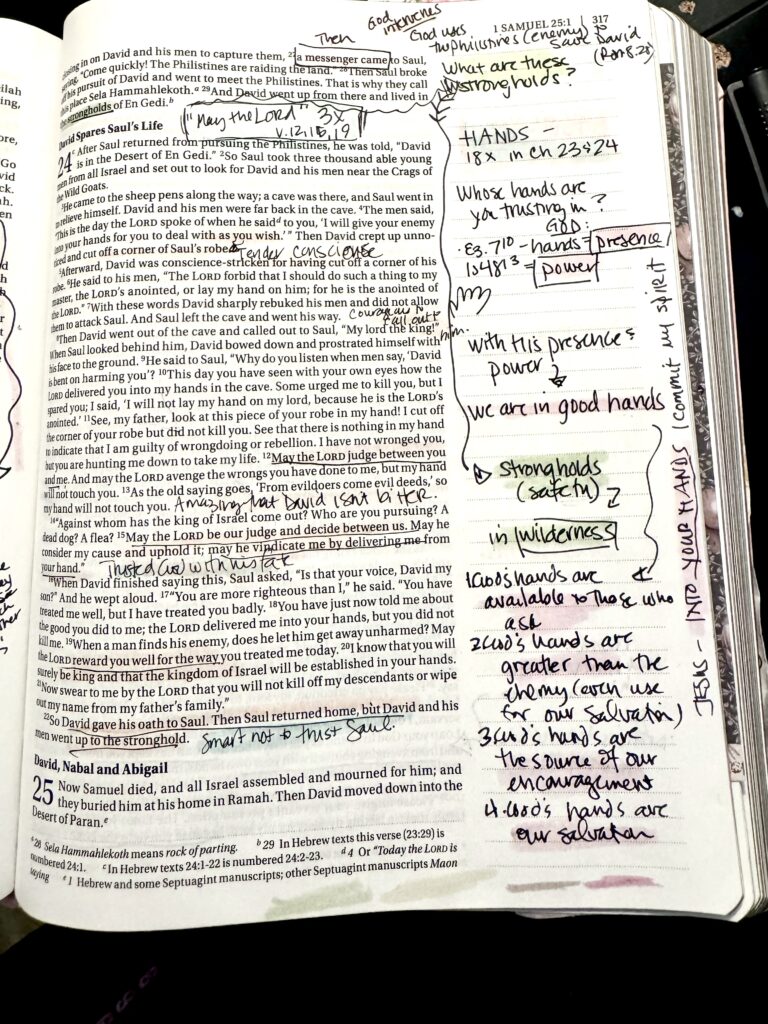 God intervenes
Then
God uses
1 SAMUEL 25:1 | 317
Philistines (enemy)
save David
(Rom 8:28)
on David and his men to capture them, 27 a messenger came to Saul,
"Come quickly! The Philistines are raiding the land." 28 Then Saul broke
his pursuit of David and went to meet the Philistines. That is why they call
place Sela Hammahlekoth.a 29 And David went up from there and lived in
strongholds of En Gedi.b
"May the Lord" 3x
v. 12, 15, 19
David Spares Saul's Life
24 c After Saul returned from pursuing the Philistines, he was told, "David
is in the Desert of En Gedi." 2 So Saul took three thousand able young
men from all Israel and set out to look for David and his men near the Crags of
the Wild Goats.
3 He came to the sheep pens along the way; a cave was there, and Saul went in
to relieve himself. David and his men were far back in the cave. 4 The men said,
"This is the day the LORD spoke of when he said d to you, 'I will give your enemy
into your hands for you to deal with as you wish.'" Then David crept up unno-
ticed and cut off a corner of Saul's robe.
Tender conscience
5 Afterward, David was conscience-stricken for having cut off a corner of his
robe. 6 He said to his men, "The LORD forbid that I should do such a thing to my
master, the LORD's anointed, or lay my hand on him; for he is the anointed of
the LORD." 7 With these words David sharply rebuked his men and did not allow
them to attack Saul. And Saul left the cave and went his way.
Courageous
call out
him.
8 Then David went out of the cave and called out to Saul, "My lord the king!"
When Saul looked behind him, David bowed down and prostrated himself with
his face to the ground. 9 He said to Saul, "Why do you listen when men say, 'David
is bent on harming you'? 10 This day you have seen with your own eyes how the
LORD delivered you into my hands in the cave. Some urged me to kill you, but I
spared you; I said, 'I will not lay my hand on my lord, because he is the LORD's
anointed.' 11 See, my father, look at this piece of your robe in my hand! I cut off
the corner of your robe but did not kill you. See that there is nothing in my hand
to indicate that I am guilty of wrongdoing or rebellion. I have not wronged you,
but you are hunting me down to take my life. 12 May the LORD judge between you
and me. And may the LORD avenge the wrongs you have done to me, but my hand
will not touch you. 13 As the old saying goes, 'From evildoers come evil deeds,' so
my hand will not touch you.
Amazing that David isn't bitter.
14 "Against whom has the king of Israel come out? Who are you pursuing? A
dead dog? A flea? 15 May the LORD be our judge and decide between us. May he
consider my cause and uphold it; may he vindicate me by delivering me from
your hand."
Trusted God with his fate
16 When David finished saying this, Saul asked, "Is that your voice, David my
son?" And he wept aloud. 17 "You are more righteous than I," he said. "You have
treated me well, but I have treated you badly. 18 You have just now told me about
the good you did to me; the LORD delivered me into your hands, but you did not
kill me. 19 When a man finds his enemy, does he let him get away unharmed? May
the LORD reward you well for the way you treated me today. 20 I know that you will
surely be king and that the kingdom of Israel will be established in your hands.
21 Now swear to me by the LORD that you will not kill off my descendants or wipe
out my name from my father's family."
22 So David gave his oath to Saul. Then Saul returned home, but David and his
men went up to the stronghold.
Smart not to trust Saul.
David, Nabal and Abigail
25 Now Samuel died, and all Israel assembled and mourned for him; and
they buried him at his home in Ramah. Then David moved down into the
Desert of Paran.e
a 28 Sela Hammahlekoth means rock of parting. b 29 In Hebrew texts this verse (23:29) is
numbered 24:1. c In Hebrew texts 24:1-22 is numbered 24:2-23. d 4 Or "Today the LORD is
saying e 1 Hebrew and some Septuagint manuscripts; other Septuagint manuscripts Maon
What are these
strongholds?
HANDS -
18x in ch 23 & 24
Whose hands are
you trusting in?
GOD:
Ez. 7:10 - hands = presence
Is 48:13 = power
with His presence &
power
we are in good hands
Strongholds
(safety)
in wilderness
1. God's hands are
available to those who
ask
2. God's hands are
greater than the
enemy (even use
for our salvation)
3. God's hands are
the source of our
encouragement
4. God's hands are
our salvation
JESUS - INTO YOUR HANDS I commit my spirit